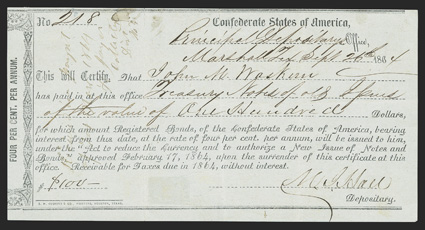 No. 218
Confederate States of America,
Principal Depositary Office,
Marshall Tex Sept 26th 1864
This will Certify, That John M. Waskom
has paid in at this office Treasury Notes of old Issues
of the value of One Hundred Dollars,
for which amount Registered Bonds, of the Confederate States of America, bearing
interest from this date, at the rate of four per cent. per annum, will be issued to him,
under the "Act to reduce the Currency and to authorize a New Issue of Notes and
Bonds" approved February 17, 1864, upon the surrender of this certificate at this
office. Receivable for Taxes due in 1864, without interest.
$100–
Depositary.
FOUR PER CENT. PER ANNUM.